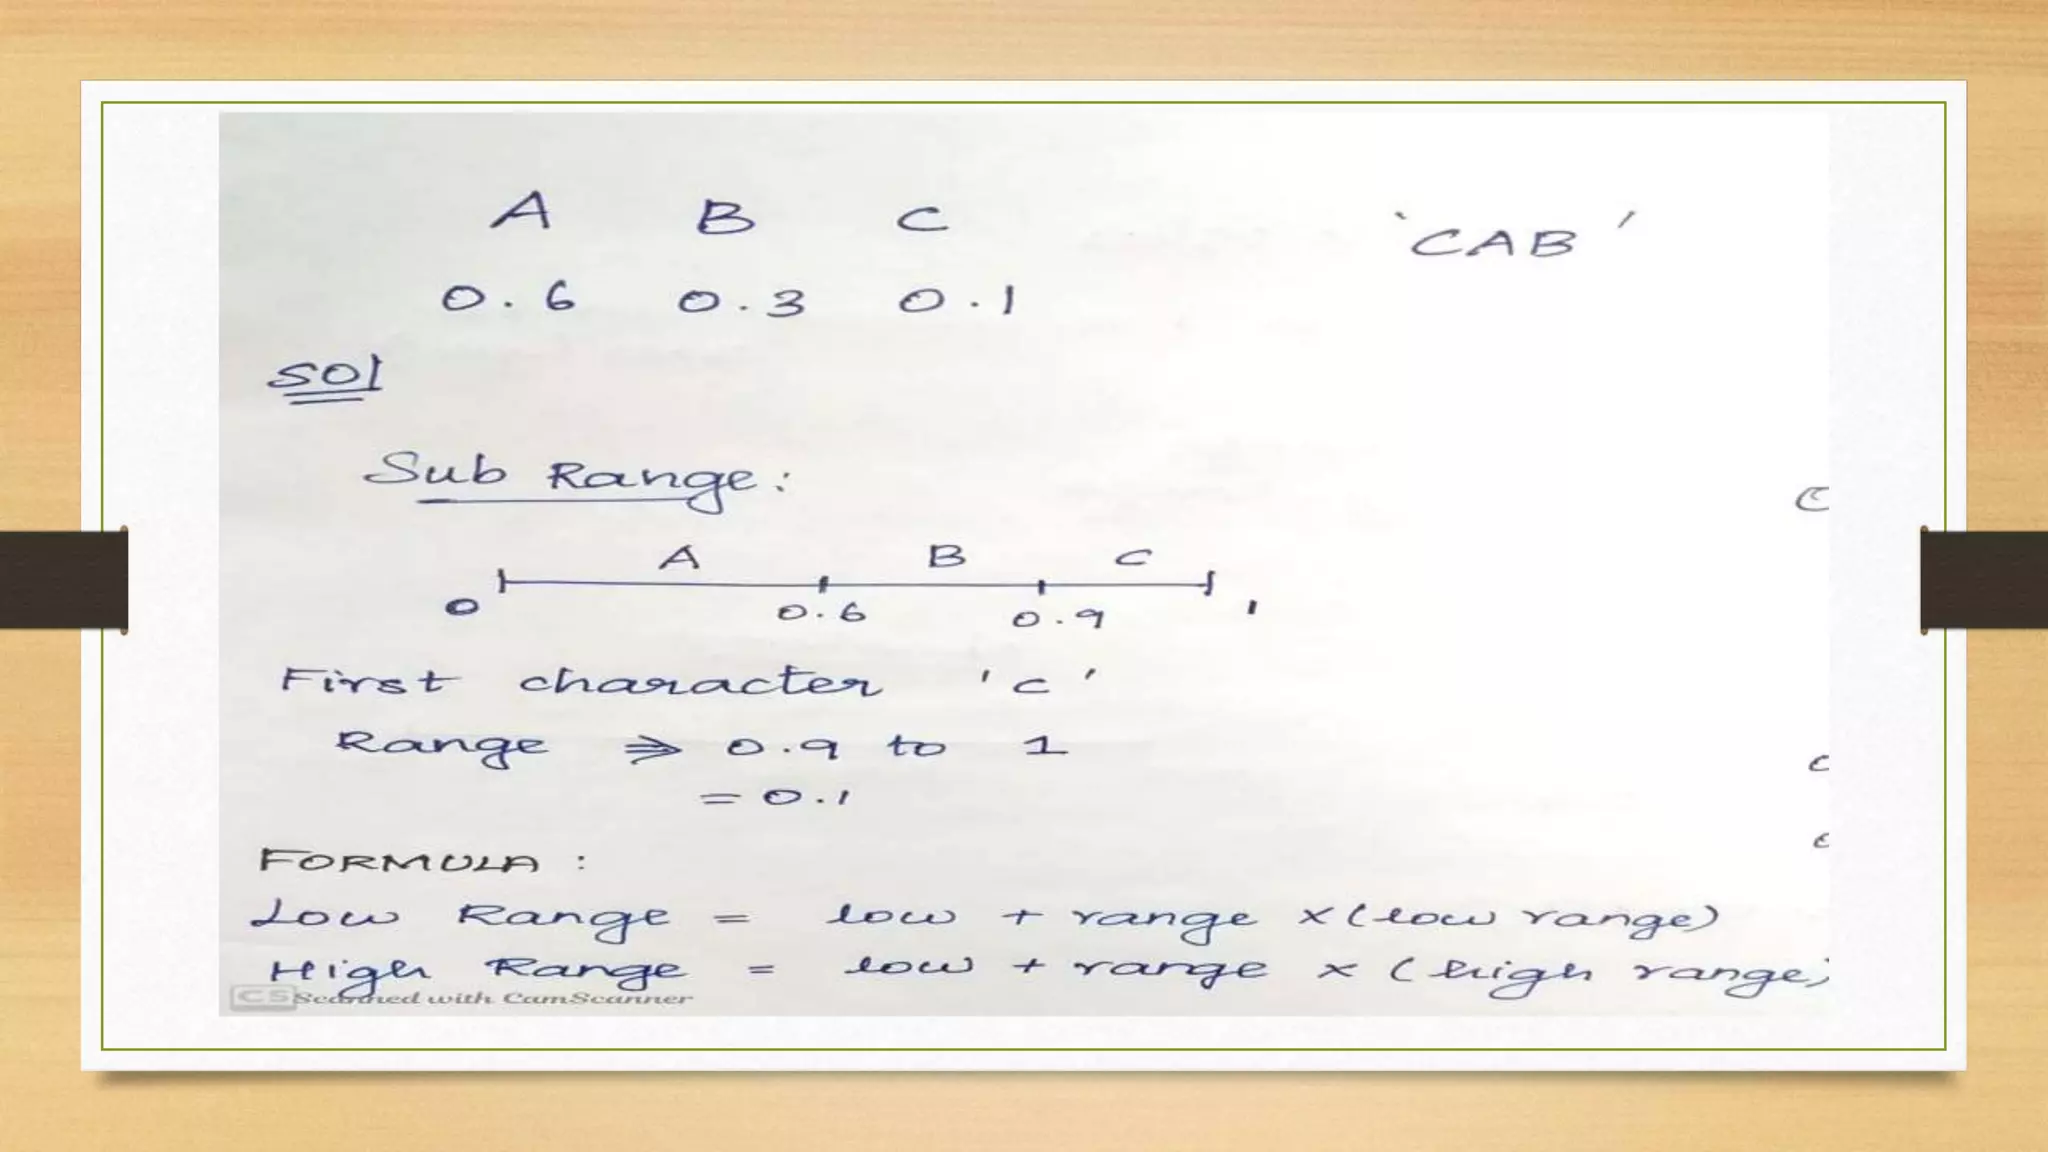 A B C
'CAB'
0.6 0.3 0.1
Sol
Sub Range:
C
A B C
0 0.6 0.9 1
First character 'c'
Range ⇒ 0.9 to 1
= 0.1
C
FORMULA :
C
Low Range = low + range x (low range)
High Range = low + range x (high range)
CS Scanned with CamScanner